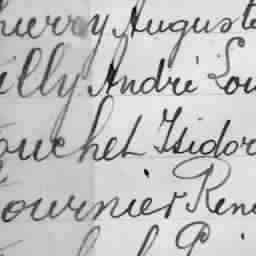 hierry Auguste
illy André Lou
ouchet Isidor
ournier René